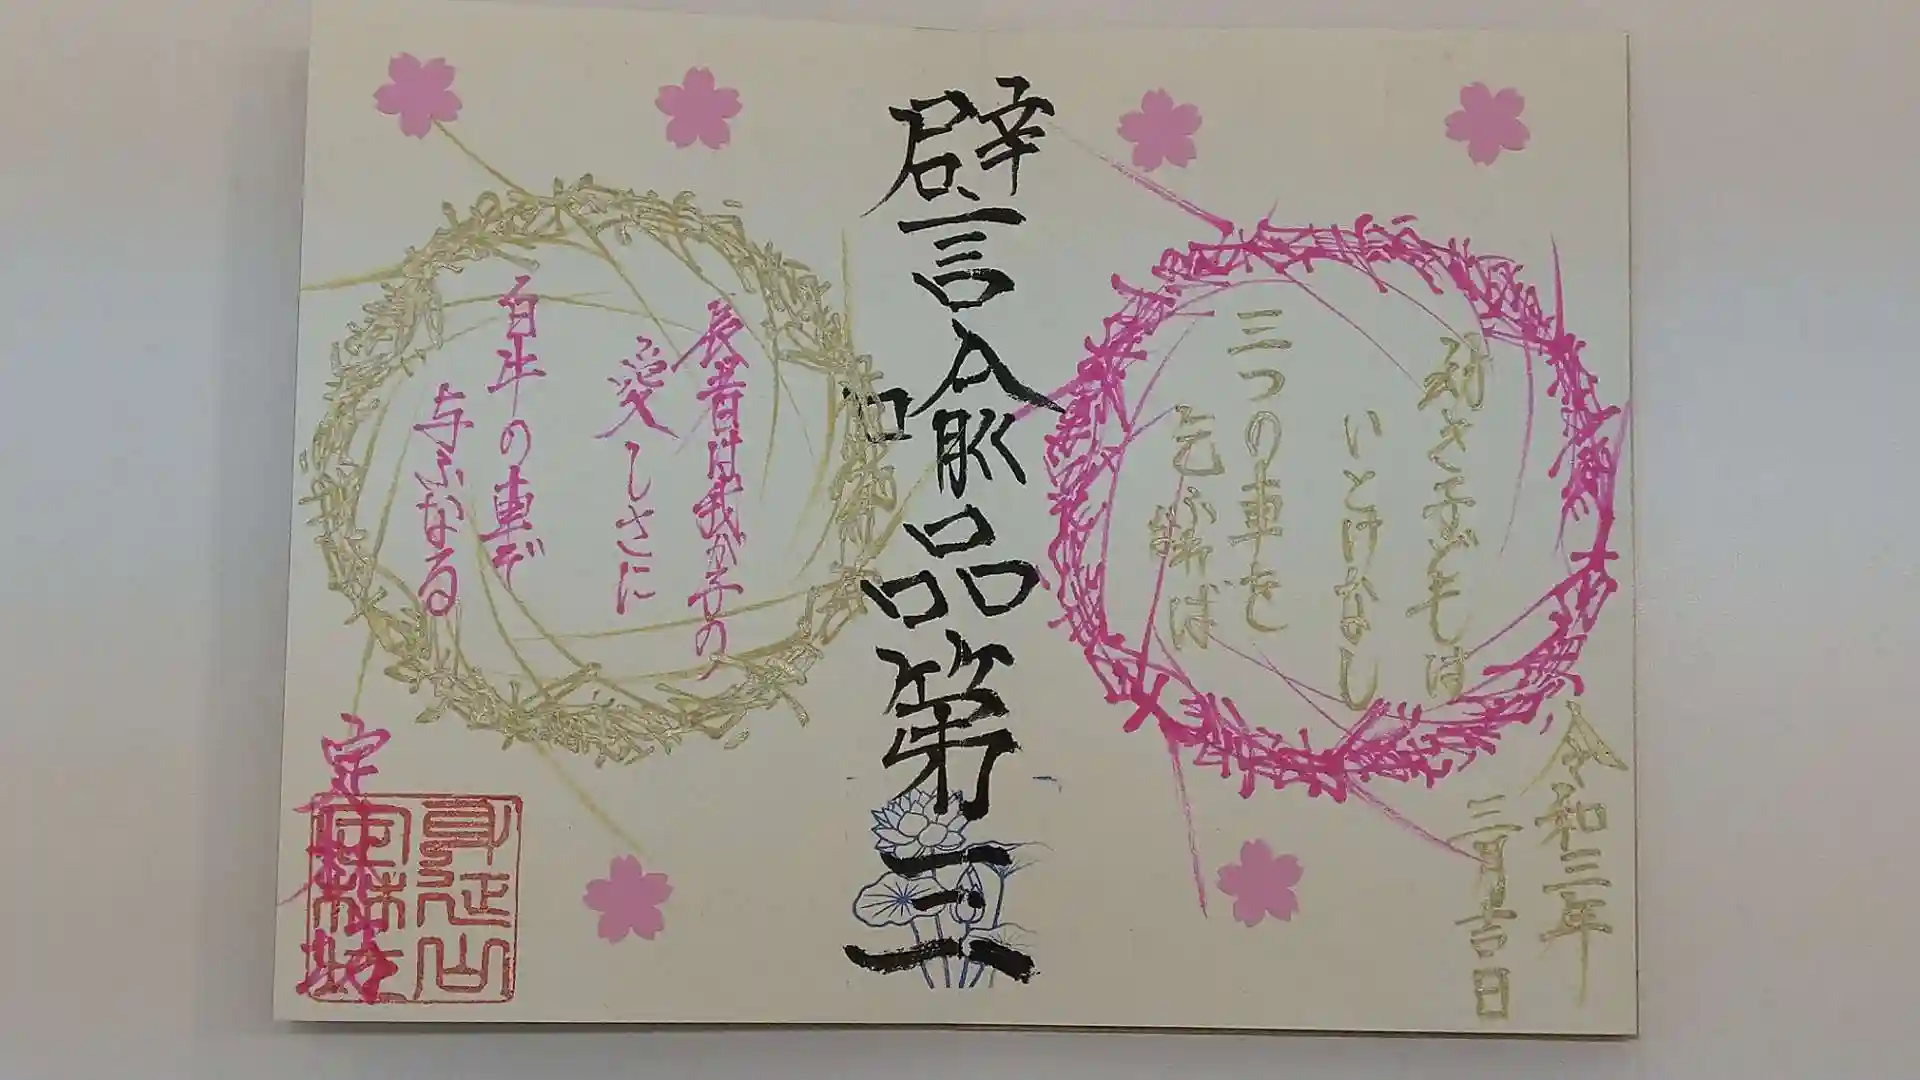 令和三年
三月吉日
幼き子どもは
いとけなし
三つの車を
乞ふれば
譬喩品第三
長者は我が子の
愛しさに
白牛の車ぞ
与ふなる
定林坊
身延山
定林坊